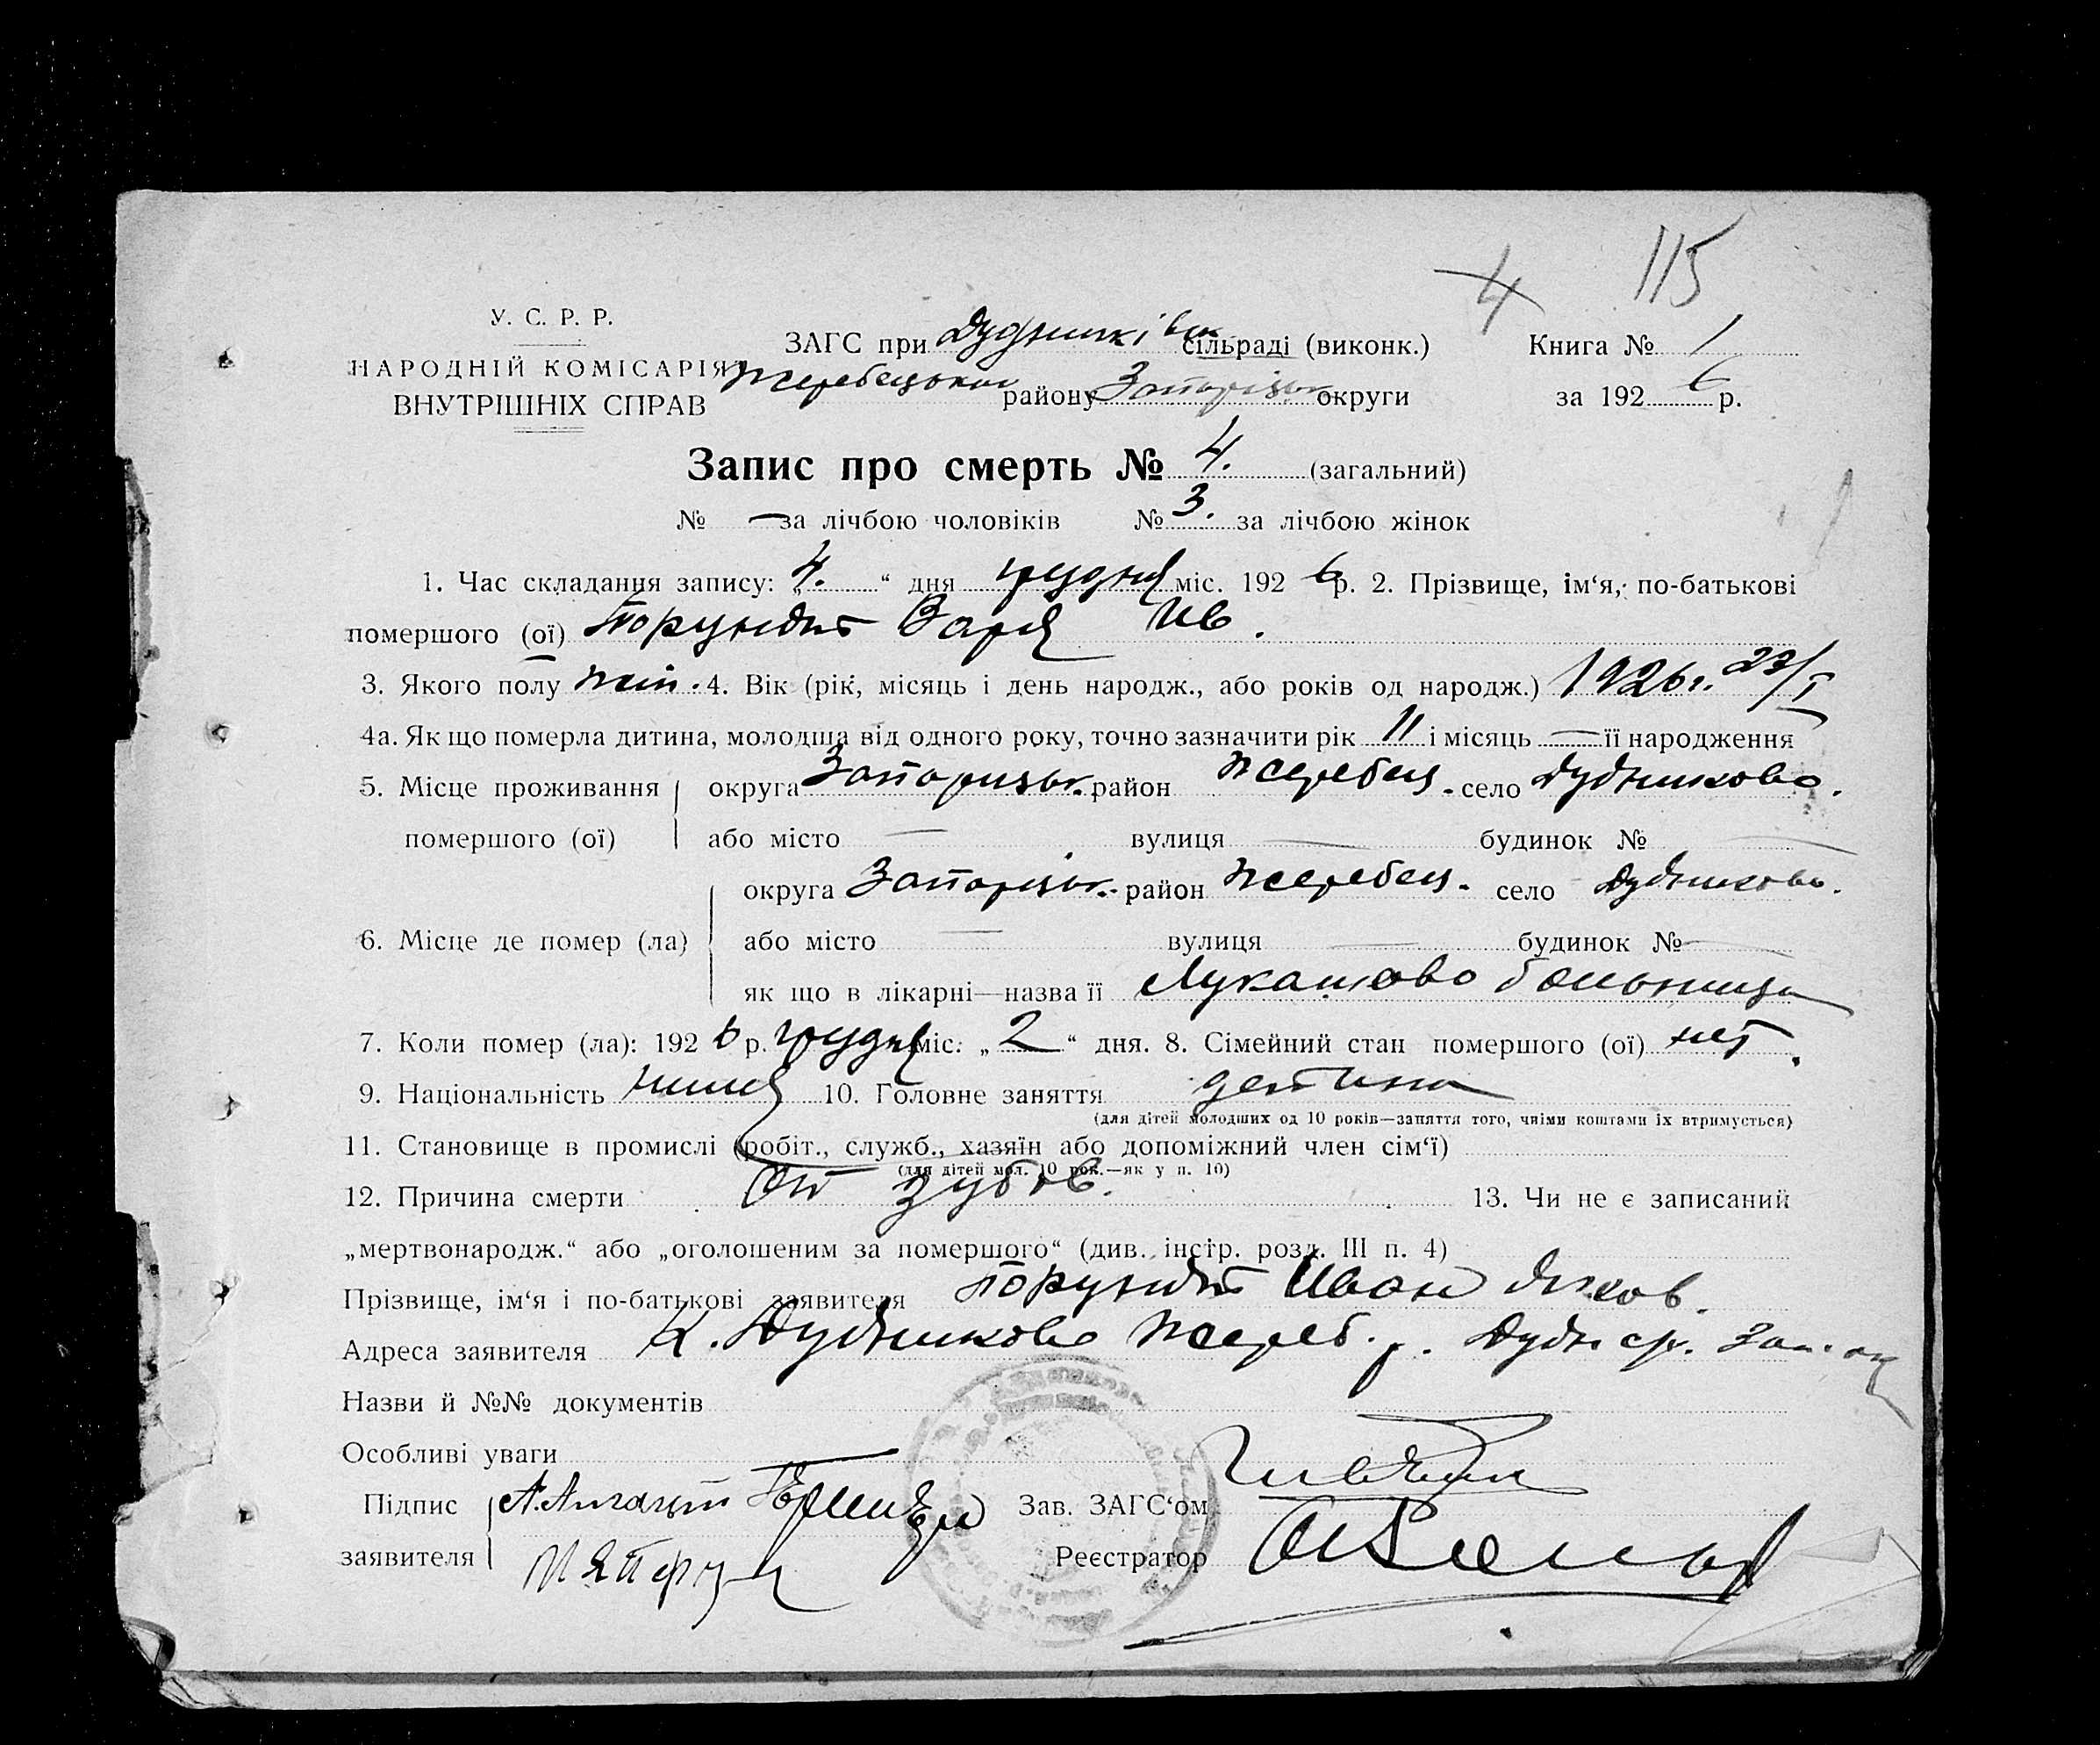 4 115
У. С. Р. Р.
НАРОДНІЙ КОМІСАРІЯТ
ВНУТРІШНІХ СПРАВ
ЗАГС при Дудниківск сільраді (виконк.)
Жеребецького району Запорізьк округи
Книга № 1
за 1926 р.
Запис про смерть № 4. (загальний)
№ — за лічбою чоловіків № 3. за лічбою жінок
1. Час складання запису: „4.“ дня грудня міс. 1926 р. 2. Прізвище, ім‘я, по-батькові
помершого (ої) Варя Ив.
3. Якого полу жін. 4. Вік (рік, місяць і день народж., або років од народж.) 1926 г. 23/I
4а. Як що померла дитина, молодша від одного року, точно зазначити рік 11 і місяць — її народження
5. Місце проживання округа Запоризьк. район Жеребец. село Дудниково.
помершого (ої) або місто — вулиця — будинок № —
округа Запорізьк. район Жеребец. село Дудниково.
6. Місце де помер (ла) або місто — вулиця — будинок № —
як що в лікарні—назва її Лукашово больница
7. Коли помер (ла): 1926 р. грудня міс. „2“ дня. 8. Сімейний стан помершого (ої) нет.
9. Національність 10. Головне заняття детина
(для дітей молодших од 10 років—заняття того, чиїми коштами їх втримується)
11. Становище в промислі (робіт., служб., хазяїн або допоміжний член сім‘ї)
(для дітей мол. 10 рок.—як у п. 10)
12. Причина смерти От зубов. 13. Чи не є записаний
„мертвонародж.“ або „оголошеним за помершого“ (див. інстр. розд. III п. 4)
Прізвище, ім‘я і по-батькові заявителя Иван Яков.
Адреса заявителя К. Дудниково Жереб. р. Дудн с/р.
Назви й №№ документів
Особливі уваги
Підпис
заявителя
Зав. ЗАГС‘ом
Реєстратор